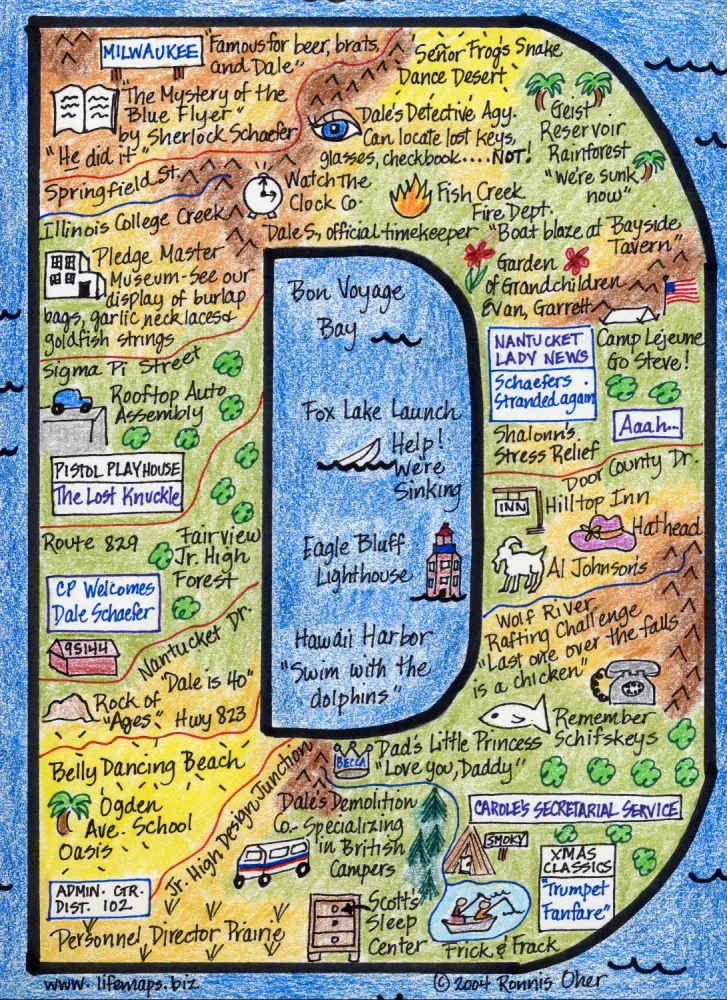 MILWAUKEE
"Famous for beer, brats,
and Dale"
Señor Frog's Snake
Dance Desert
"The Mystery of the
Blue Flyer"
by Sherlock Schaefer
"He did it"
Dale's Detective Agy.
Can locate lost keys,
glasses, checkbook....NOT!
Geist
Reservoir
Rainforest
"We're sunk
now"
Springfield St.
Watch The
Clock Co.
Dale S., official timekeeper
Fish Creek
Fire Dept.
"Boat blaze at Bayside
Tavern"
Illinois College Creek
Pledge Master
Museum-See our
display of burlap
bags, garlic necklaces &
goldfish strings
Garden
of Grandchildren
Evan, Garrett
Camp Lejeune
Go Steve!
Bon Voyage
Bay
NANTUCKET
LADY NEWS
Schaefers
Stranded again
Sigma Pi Street
Rooftop Auto
Assembly
Fox Lake Launch
Help!
We're
Sinking
Shalonn's
Stress Relief
Aaah...
PISTOL PLAYHOUSE
The Lost Knuckle
Door County Dr.
INN
Hilltop Inn
Hathead
Al Johnson's
Route 829
Fairview
Jr. High
Forest
Eagle Bluff
Lighthouse
CP Welcomes
Dale Schaefer
95144
Nantucket Dr.
Wolf River
Rafting Challenge
"Last one over the falls
is a chicken"
Hawaii Harbor
"Swim with the
dolphins"
Rock of
"Ages"
"Dale is 40"
Hwy 823
Remember
Schifskeys
Belly Dancing Beach
Ogden
Ave. School
Oasis
Jr. High Design Junction
BECCA
Dad's Little Princess
"Love you, Daddy"
Dale's Demolition
Co.-Specializing
in British
Campers
CAROLE'S SECRETARIAL SERVICE
SMOKY
XMAS
CLASSICS
"Trumpet
Fanfare"
ADMIN. CTR.
DIST. 102
Personnel Director Prairie
Scott's
Sleep
Center
Frick & Frack
www.lifemaps.biz
© 2004 Ronnis Oher